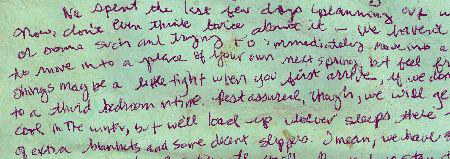 We spent the last few days planning our w
Now, don't even think twice about it – we haven't
or some such and trying to immediately move into a
to move into a place of your own next spring, but feel fr
things may be a little tight when you first arrive, if we don
to a third bedroom in time. Rest assured, though, we will ge
cool in the winter, but we'll load up
of extra blankets and some decent slippers. I mean, we have s